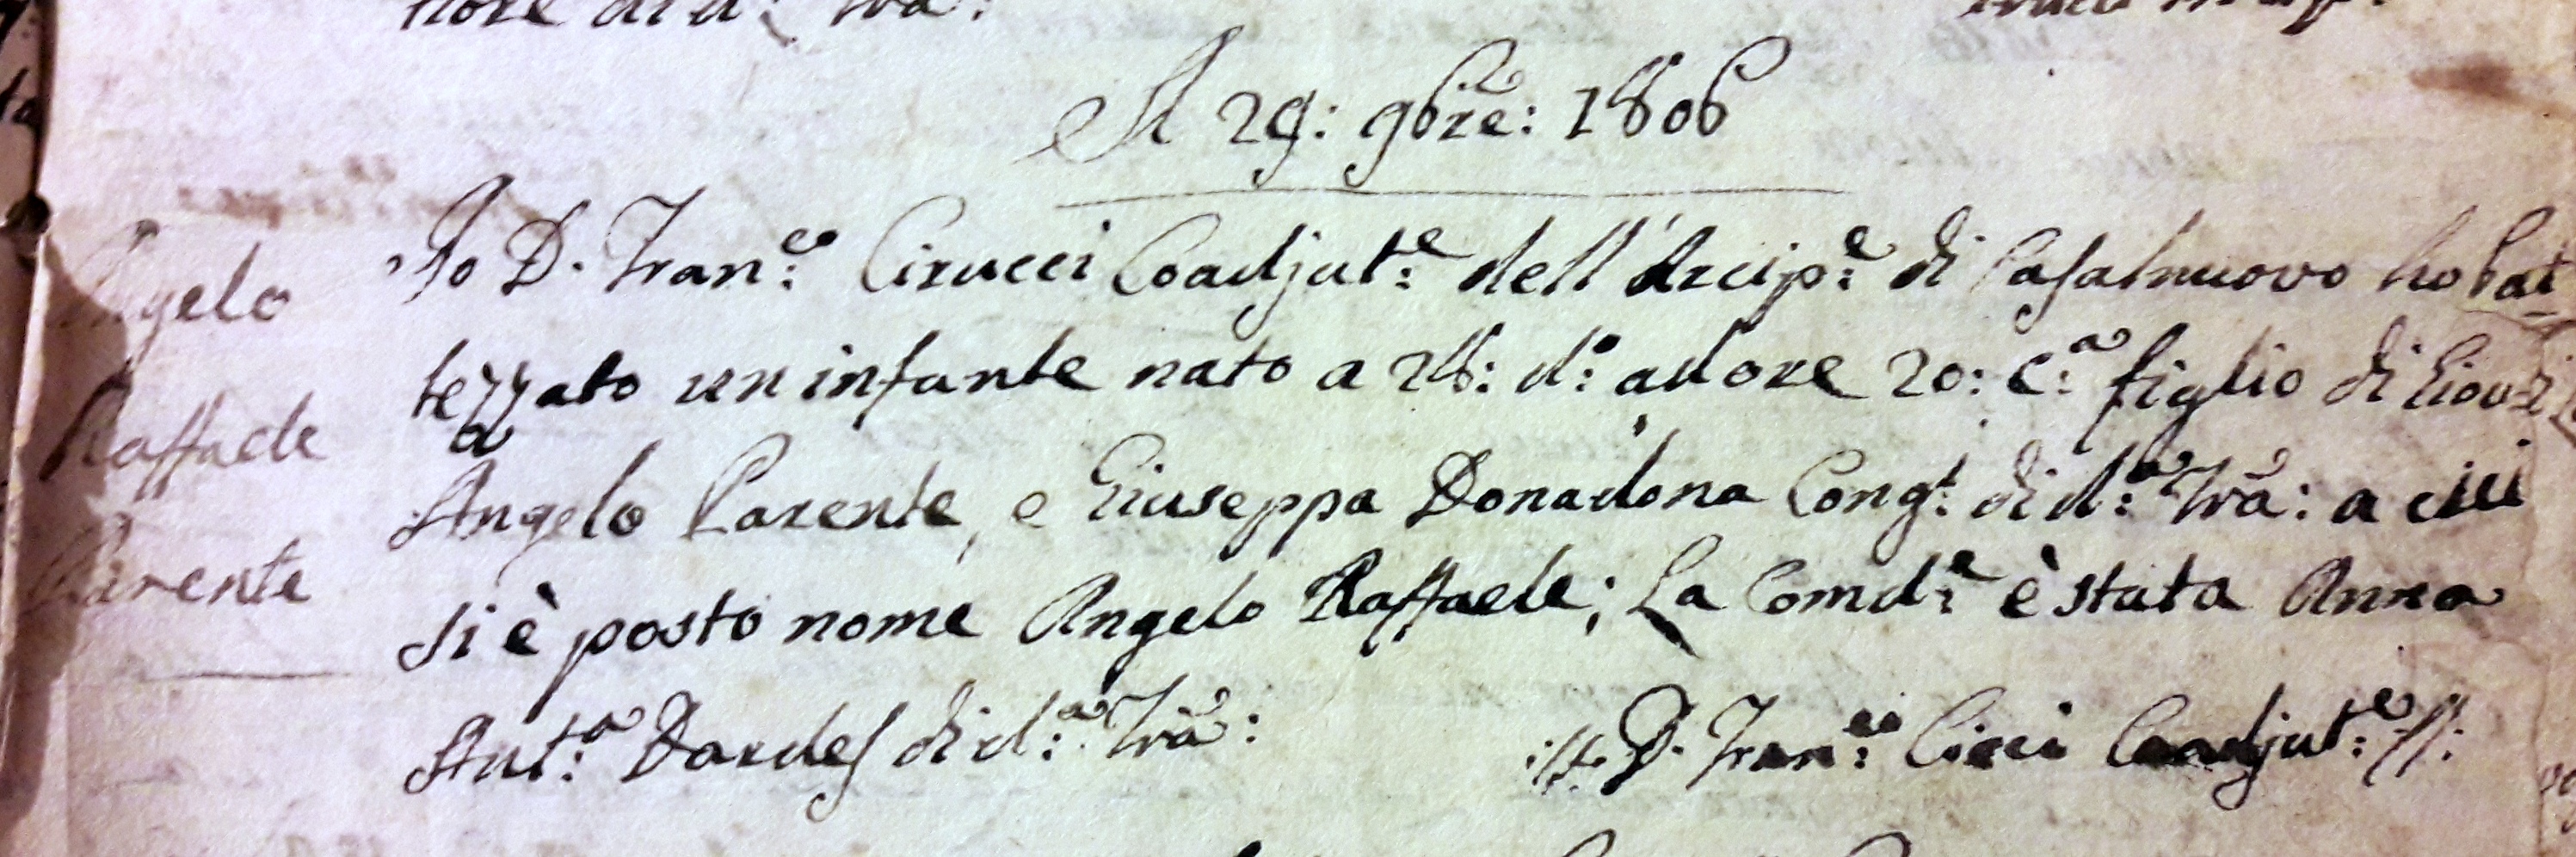 A 29: 9bre: 1806
Angelo
Raffaele
Parente
Io D. Fran:co Cirucci Coadjut:e dell'Arcip:e di Casalnuovo ho bat
tezzato un infante nato a 28: d:o ad ore 20: c:a figlio di
Angelo Parente, e Giuseppa Donadona Cong:t di d:a Trã: a cui
si è posto nome Angelo Raffaele; La Comd:e è stata Anna
Ant:a Dardes di d:a Trã:
D. Fran:co Coadjut:e